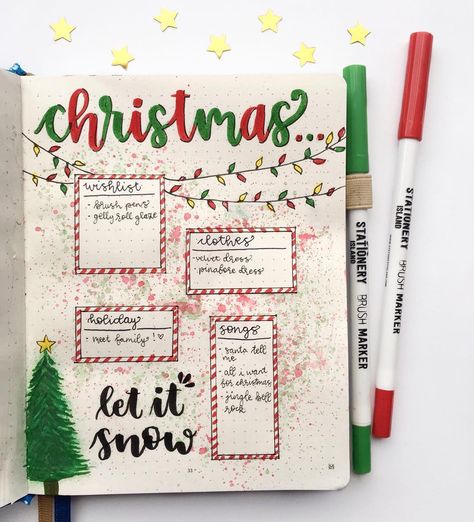 christmas...
wishlist
- brush pens
- gelly roll glaze
clothes
- velvet dress
- pinafore dress
holiday
- meet family!
songs
- santa tell
me
- all i want
for christmas
- jingle bell
rock
let it
snow
33
STATIONERY
ISLAND
BRUSH MARKER
STATIONERY
ISLAND
BRUSH MARKER